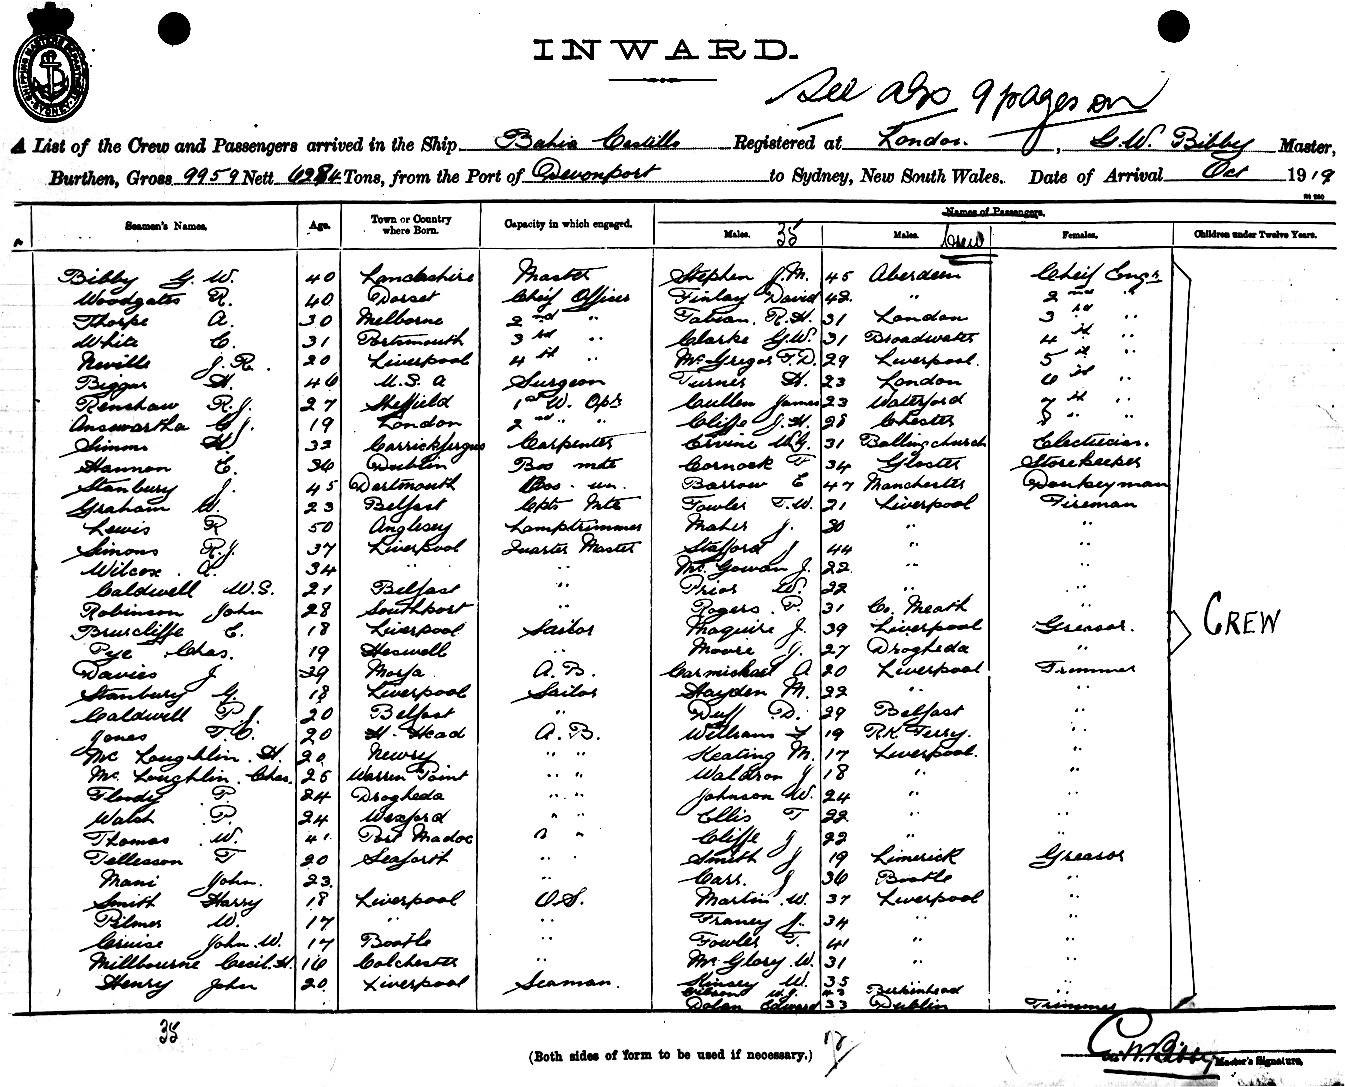 SHIPPING MASTER'S DEPARTMENT SYDNEY
INWARD.
See also 9 pages on
A List of the Crew and Passengers arrived in the Ship Bahia Castillo Registered at London, G.W. Bibby Master,
Burthen, Gross 9959 Nett 6284 Tons, from the Port of Devonport to Sydney, New South Wales. Date of Arrival Oct 1919
Seamen's Names. Age. Town or Country where Born. Capacity in which engaged. Names of Passengers.
Males. 35 Males. Crew Females. Children under Twelve Years.
Bibby G. W. 40 Lancashire Master Stephen J.M. 45 Aberdeen Cheif Engr
Woodgates R. 40 Dorset Cheif Officer Finlay David 42 " 2nd "
Thorpe A. 30 Melborne 2nd " Fabian. R.H. 31 London 3rd "
White C. 31 Portsmouth 3rd " Clarke G.W. 31 Broadwater 4th "
Neville J.R. 20 Liverpool 4th " McGregor F.D. 29 Liverpool. 5th "
Biggar H. 46 U.S.A Surgeon Turner H. 23 London 6th "
Renshaw R.J. 27 Sheffield 1st W. Optr Cullen James 23 Waterford 7th "
Answartha C.J. 19 London 2nd " " Cliffe J.H. 28 Chester 8 " "
Simms H 32 Carrickfergus Carpenter Ervine W.G. 31 Ballingchurch Electrician.
Hannon C. 36 Dublin Bos mte Cornock F 34 Gloster Storekeeper
Stanbury J. 45 Dartmouth Bos. un. Barrow E 47 Manchester Donkeyman
Graham W. 23 Belfast Cpts Mte Fowler T.W. 21 Liverpool Fireman
Lewis R 50 Anglesey Lamptrimmer Maher J. 30 " "
Simons R.J. 37 Liverpool Quarter Master Stafford J 44 " "
Wilcox A. 34 " " " Mc Gowan J. 22 " "
Caldwell W.S. 21 Belfast " Prior W. 22 " "
Robinson John 28 Southport " Rogers P. 31 Co. Meath "
CREW
Bruncliffe E. 18 Liverpool Sailor Maguire J. 39 Liverpool Greasor.
Pye Chas. 19 Heswell " Moore J. 27 Drogheda "
Davies J 39 Morfa A.B. Carmichael A 20 Liverpool Trimmer
Stanbury G. 18 Liverpool Sailor Hayden M. 22 " "
Caldwell P.J. 20 Belfast " Duff D. 29 Belfast "
Jones T.C. 20 H. Head A.B. Williams 19 RK. Ferry. "
Mc Loughlin. H. 20 Newry " " Keating M. 17 Liverpool. "
Mc. Loughlin. Chas. 25 Warren Point " " Waldron J 18 " "
Floody P. 24 Drogheda " " Johnson W. 24 " "
Walsh P. 24 Wexford " " Ellis T 22 " "
Thomas W. 41. Port Madoc " " Cliffe J 22 " "
Tellesson T 20 Seaforth " Smith J 19 Limerick Greasor
Mani John. 23. " Carr. J 36 Bootle "
Smith Harry 18 Liverpool O.S. Martin W. 37 Liverpool "
Pilmer W. 17 " " Franey J. 34 " "
Cruise John W. 17 Bootle " Fowler T. 41 " "
Millbourne Cecil. H. 16 Colchester " Mc Glory W. 31 " "
Henry John 20 Liverpool Seaman. Kinsey W. 35 "
W.J. 43 Berkenhead "
Dolan Edward 33 Dublin Trimmer
35
(Both sides of form to be used if necessary.)
G.W. Bibby Master's Signature.